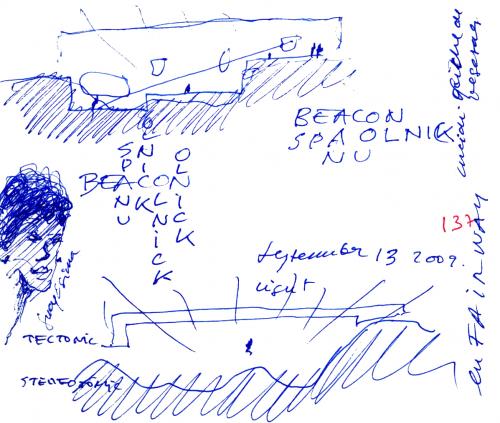 BEACON
SPAOLNICK
NU
SPANU
OLNICK
BEACON
OLNICK
OLNICK
september 13 2009.
light
137
TECTONIC
STEREOTOMIC
en FAIRWAY